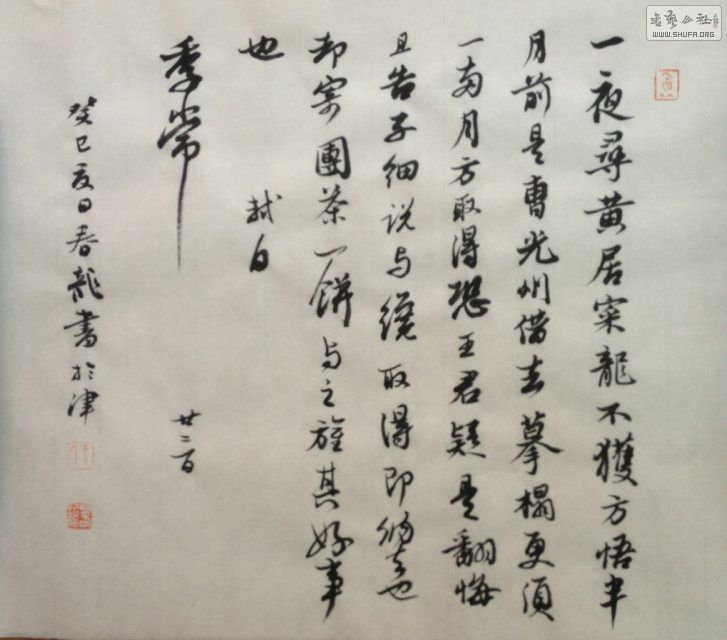 一夜尋黄居寀龍不獲方悟半
月前是曹光州借去摹榻更須
一兩月方取得恐王君疑是翻悔
且告子細説与纔取得即納去也
却寄團茶一餅与之旌其好事
也
軾白
季常
廿三日
癸巳夏日春龍書於津
書藝公社
WWW.SHUFA.ORG